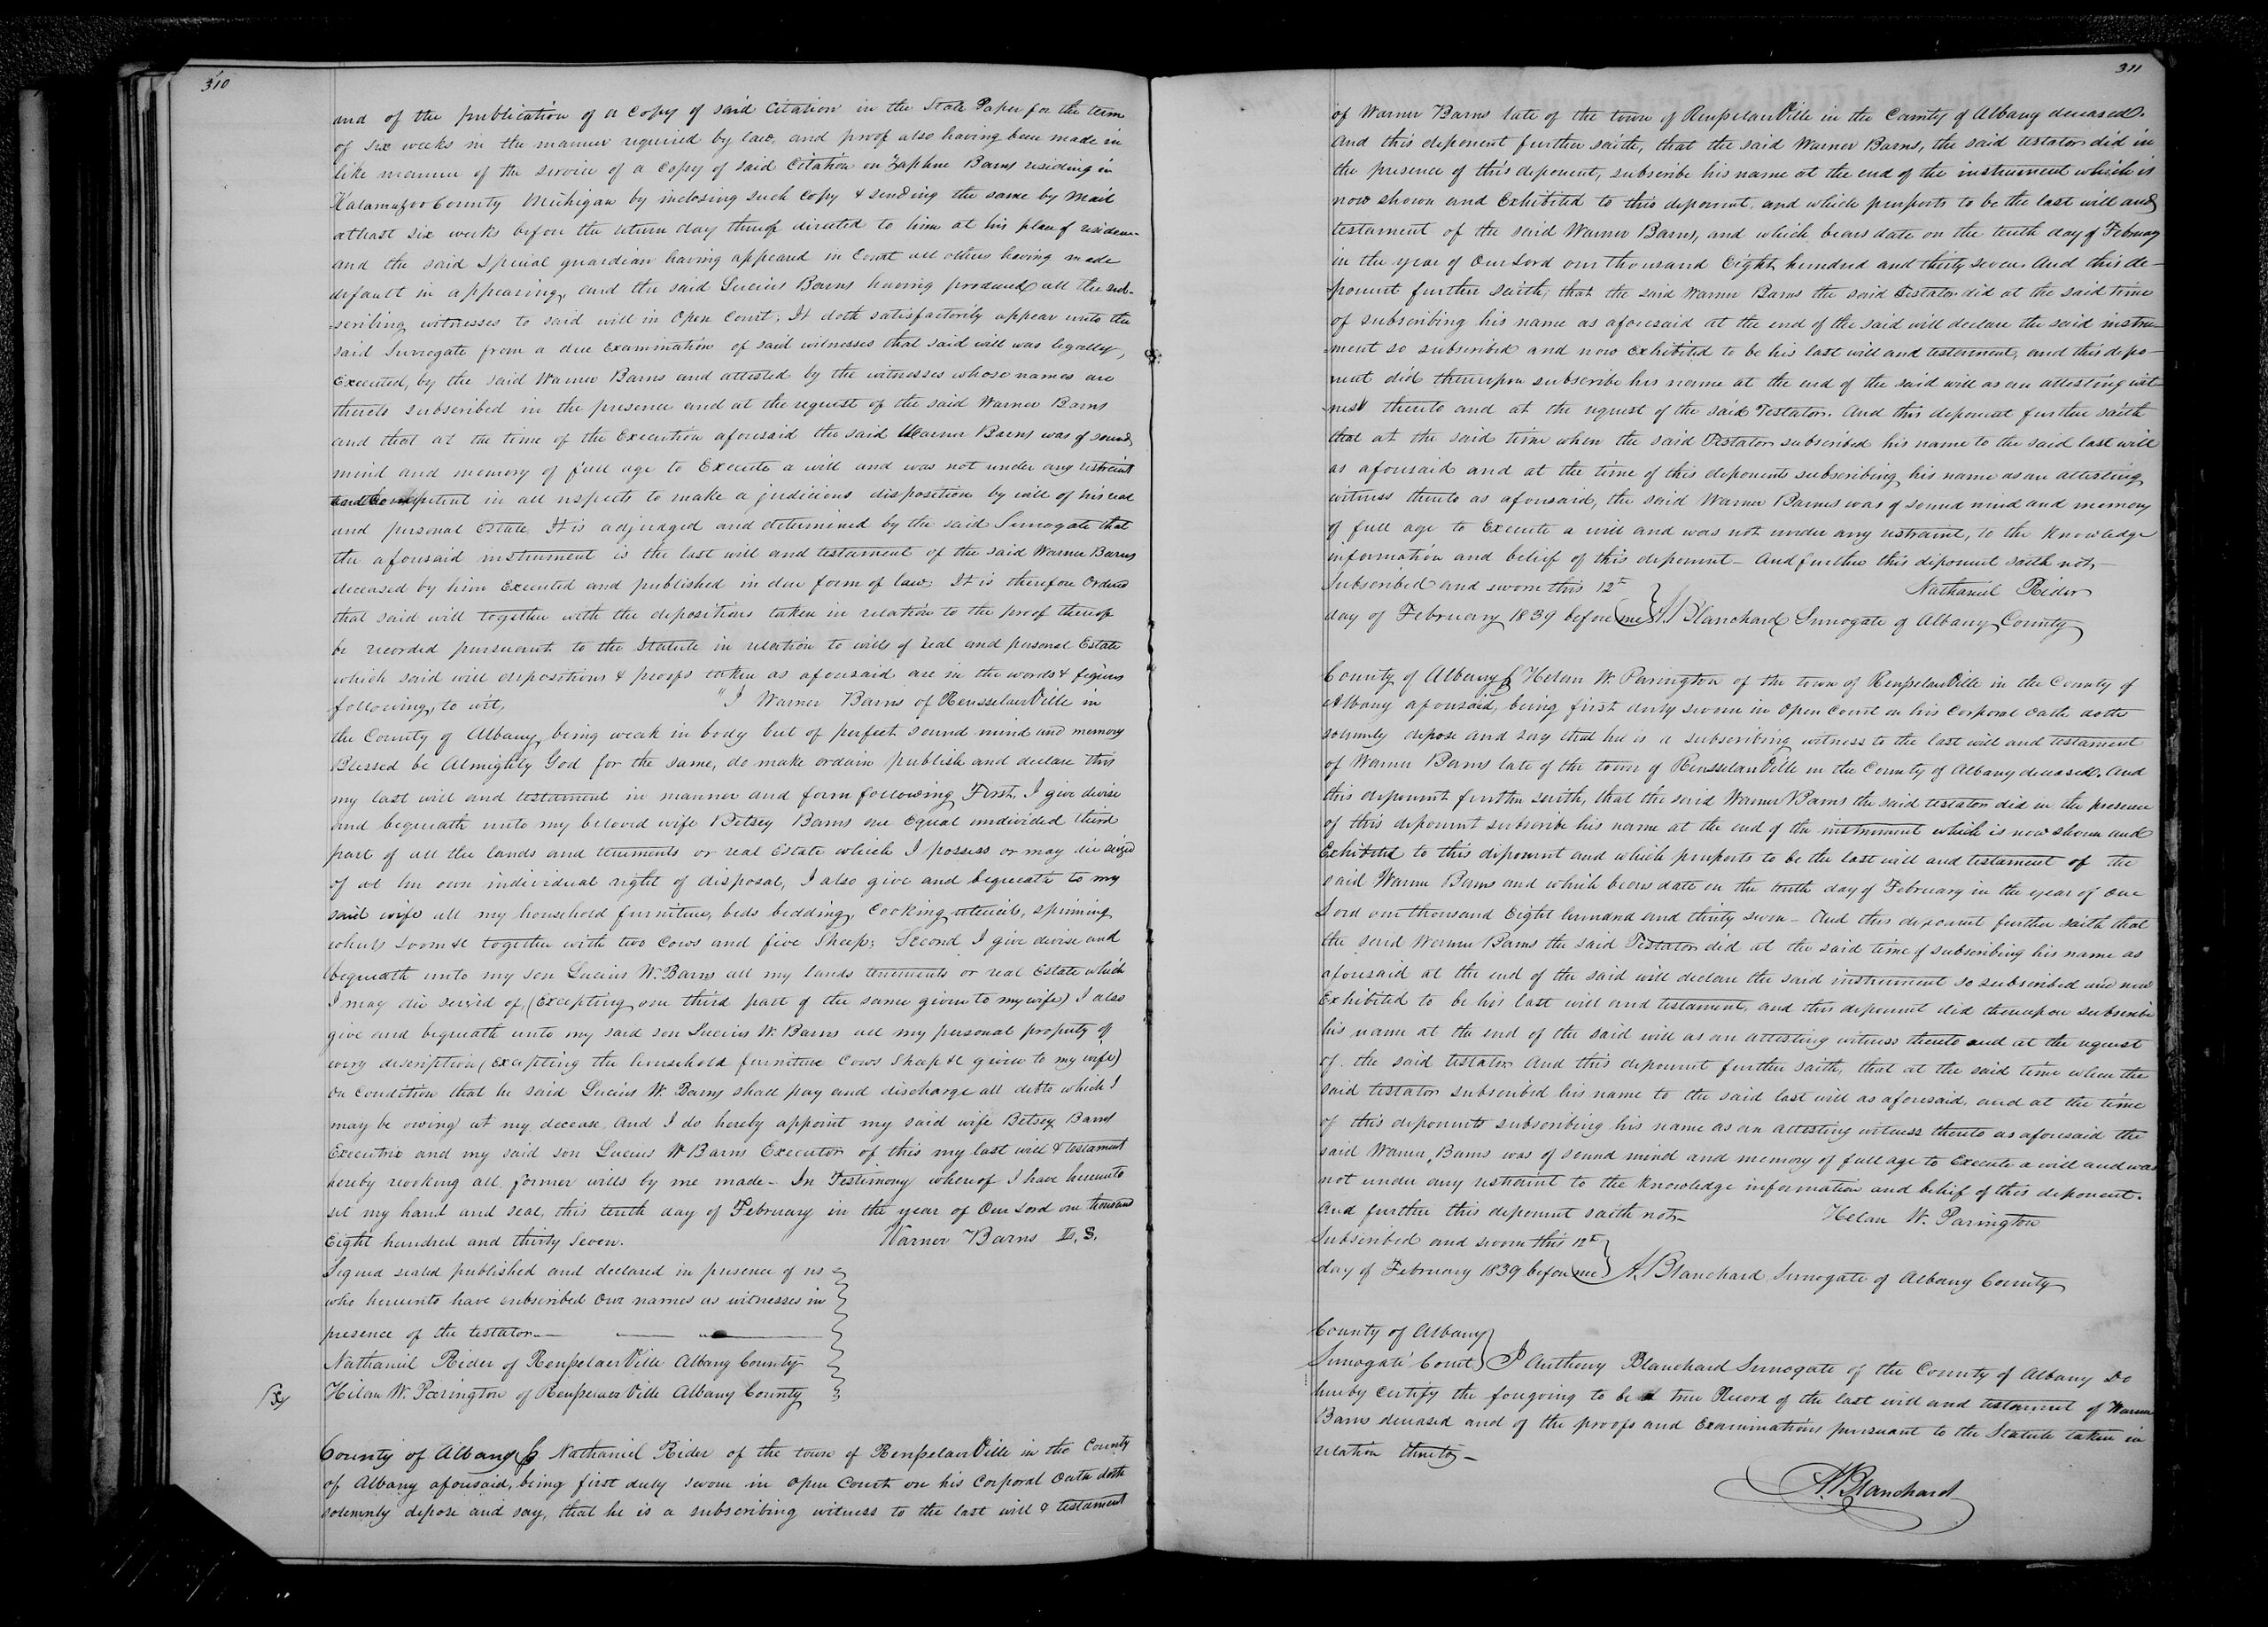 310
and of the publication of a Copy of said Citation in the State Paper for the term
of six weeks in the manner required by law, and proof also having been made in
like manner of the service of a Copy of said Citation on Zaphne Barns residing in
Kalamazoo County Michigan by inclosing such Copy & sending the same by mail
atleast six weeks before the return day thereof directed to him at his place of residence
and the said special guardian having appeared in Court all others having made
default in appearing, and the said Lucius Barns having produced all the sub-
-scribing witnesses to said will in Open Court; It doth satisfactorily appear unto the
said Surrogate from a due Examination of said witnesses that said will was legally
Executed, by the said Warner Barns and attested by the witnesses whose names are
thereto subscribed in the presence and at the request of the said Warner Barns
and that at the time of the Execution aforesaid the said Warner Barns was of sound
mind and memory of full age to Execute a will and was not under any restraint
and Competent in all respects to make a judicious disposition by will of his real
and personal Estate. It is adjudged and determined by the said Surrogate that
the aforesaid instrument is the last will and testament of the said Warner Barns
deceased by him Executed and published in due form of law. It is therefore Ordered
that said will together with the depositions taken in relation to the proof thereof
be recorded pursuant to the Statute in relation to wills of real and personal Estate
which said will depositions & proofs taken as aforesaid are in the words & figures
following, to wit, "I Warner Barns of RensselaerVille in
the County of Albany, being weak in body but of perfect sound mind and memory
Blessed be Almighty God for the same, do make ordain publish and declare this
my last will and testament in manner and form following First, I give devise
and bequeath unto my beloved wife Betsey Barns one Equal undivided third
part of all the lands and tenements or real Estate which I possess or may die seized
of at my own individual right of disposal, I also give and bequeath to my
said wife all my household furniture, beds bedding, Cooking utencils, spinning
wheels loom &c together with two Cows and five Sheep; Second I give devise and
bequeath unto my son Lucius W. Barns all my lands tenements or real Estate which
I may die seized of, (Excepting one third part of the same given to my wife) I also
give and bequeath unto my said son Lucius W. Barns all my personal property of
every description (Excepting the household furniture Cows Sheep &c given to my wife)
on Condition that he said Lucius W. Barns shall pay and discharge all debts which I
may be owing at my decease, And I do hereby appoint my said wife Betsey Barns
Executrix and my said son Lucius W Barns Executor of this my last will & testament
hereby revoking all former wills by me made – In Testimony whereof I have hereunto
set my hand and seal, this tenth day of February in the year of Our Lord one thousand
Eight hundred and thirty Seven. Warner Barns L, S.
Signed sealed published and declared in presence of us
who hereunto have subscribed Our names as witnesses in
presence of the testator —
Nathaniel Rider of RensselaerVille Albany County
Hilan W. Parington of RensselaerVille Albany County
County of Albany Nathaniel Rider of the town of RensselaerVille in the County
of Albany aforesaid, being first duly sworn in Open Court on his Corporal Oath doth
solemnly depose and say, that he is a subscribing witness to the last will & testament
311
of Warner Barns late of the town of RensselaerVille in the County of Albany deceased.
And this deponent further saith, that the said Warner Barns, the said testator did in
the presence of this deponent, subscribe his name at the end of the instrument which is
now shown and Exhibited to this deponent, and which purports to be the last will and
testament of the said Warner Barns, and which bears date on the tenth day of February
in the year of Our Lord one thousand Eight hundred and thirty seven. And this de-
-ponent further saith, that the said Warner Barns the said testator did at the said time
of subscribing his name as aforesaid at the end of the said will declare the said instru-
-ment so subscribed and now Exhibited to be his last will and testament, and this depo-
nent did thereupon subscribe his name at the end of the said will as an attesting wit-
-ness thereto and at the request of the said Testator. And this deponent further saith
that at the said time when the said Testator subscribed his name to the said last will
as aforesaid and at the time of this deponents subscribing his name as an attesting
witness thereto as aforesaid, the said Warner Barnes was of sound mind and memory
of full age to Execute a will and was not under any restraint, to the knowledge
information and belief of this deponent – And further this deponent saith not,–
Subscribed and sworn this 12th Nathaniel Rider
day of February 1839 before me A. Blanchard Surrogate of Albany County
County of Albany Helan W. Parington of the town of RensselaerVille in the County of
Albany aforesaid, being first duly sworn in Open Court on his Corporal Oath doth
solemnly depose and say that he is a subscribing witness to the last will and testament
of Warner Barns late of the town of RensselaerVille in the County of Albany deceased. And
this deponent further saith, that the said Warner Barns the said testator did in the presence
of this deponent subscribe his name at the end of the instrument which is now shown and
Exhibited to this deponent and which purports to be the last will and testament of the
said Warner Barns and which bears date on the tenth day of February in the year of Our
Lord one thousand Eight hundred and thirty seven – And this deponent further saith that
the said Warner Barns the said Testator did at the said time of subscribing his name as
aforesaid at the end of the said will declare the said instrument so subscribed and now
Exhibited to be his last will and testament, and this deponent did thereupon subscribe
his name at the end of the said will as an attesting witness thereto and at the request
of the said testator And this deponent further saith, that at the said time when the
said testator subscribed his name to the said last will as aforesaid, and at the time
of this deponents subscribing his name as an attesting witness thereto as aforesaid the
said Warner Barns was of sound mind and memory of full age to Execute a will and was
not under any restraint to the knowledge information and belief of this deponent.
And further this deponent saith not– Helan W. Parington
Subscribed and sworn this 12th
day of February 1839 before me A. Blanchard Surrogate of Albany County
County of Albany
Surrogate' Court I Anthony Blanchard Surrogate of the County of Albany Do
hereby Certify the foregoing to be a true Record of the last will and testament of Warner
Barns deceased and of the proofs and Examinations pursuant to the Statute taken in
relation thereto–
A. Blanchard